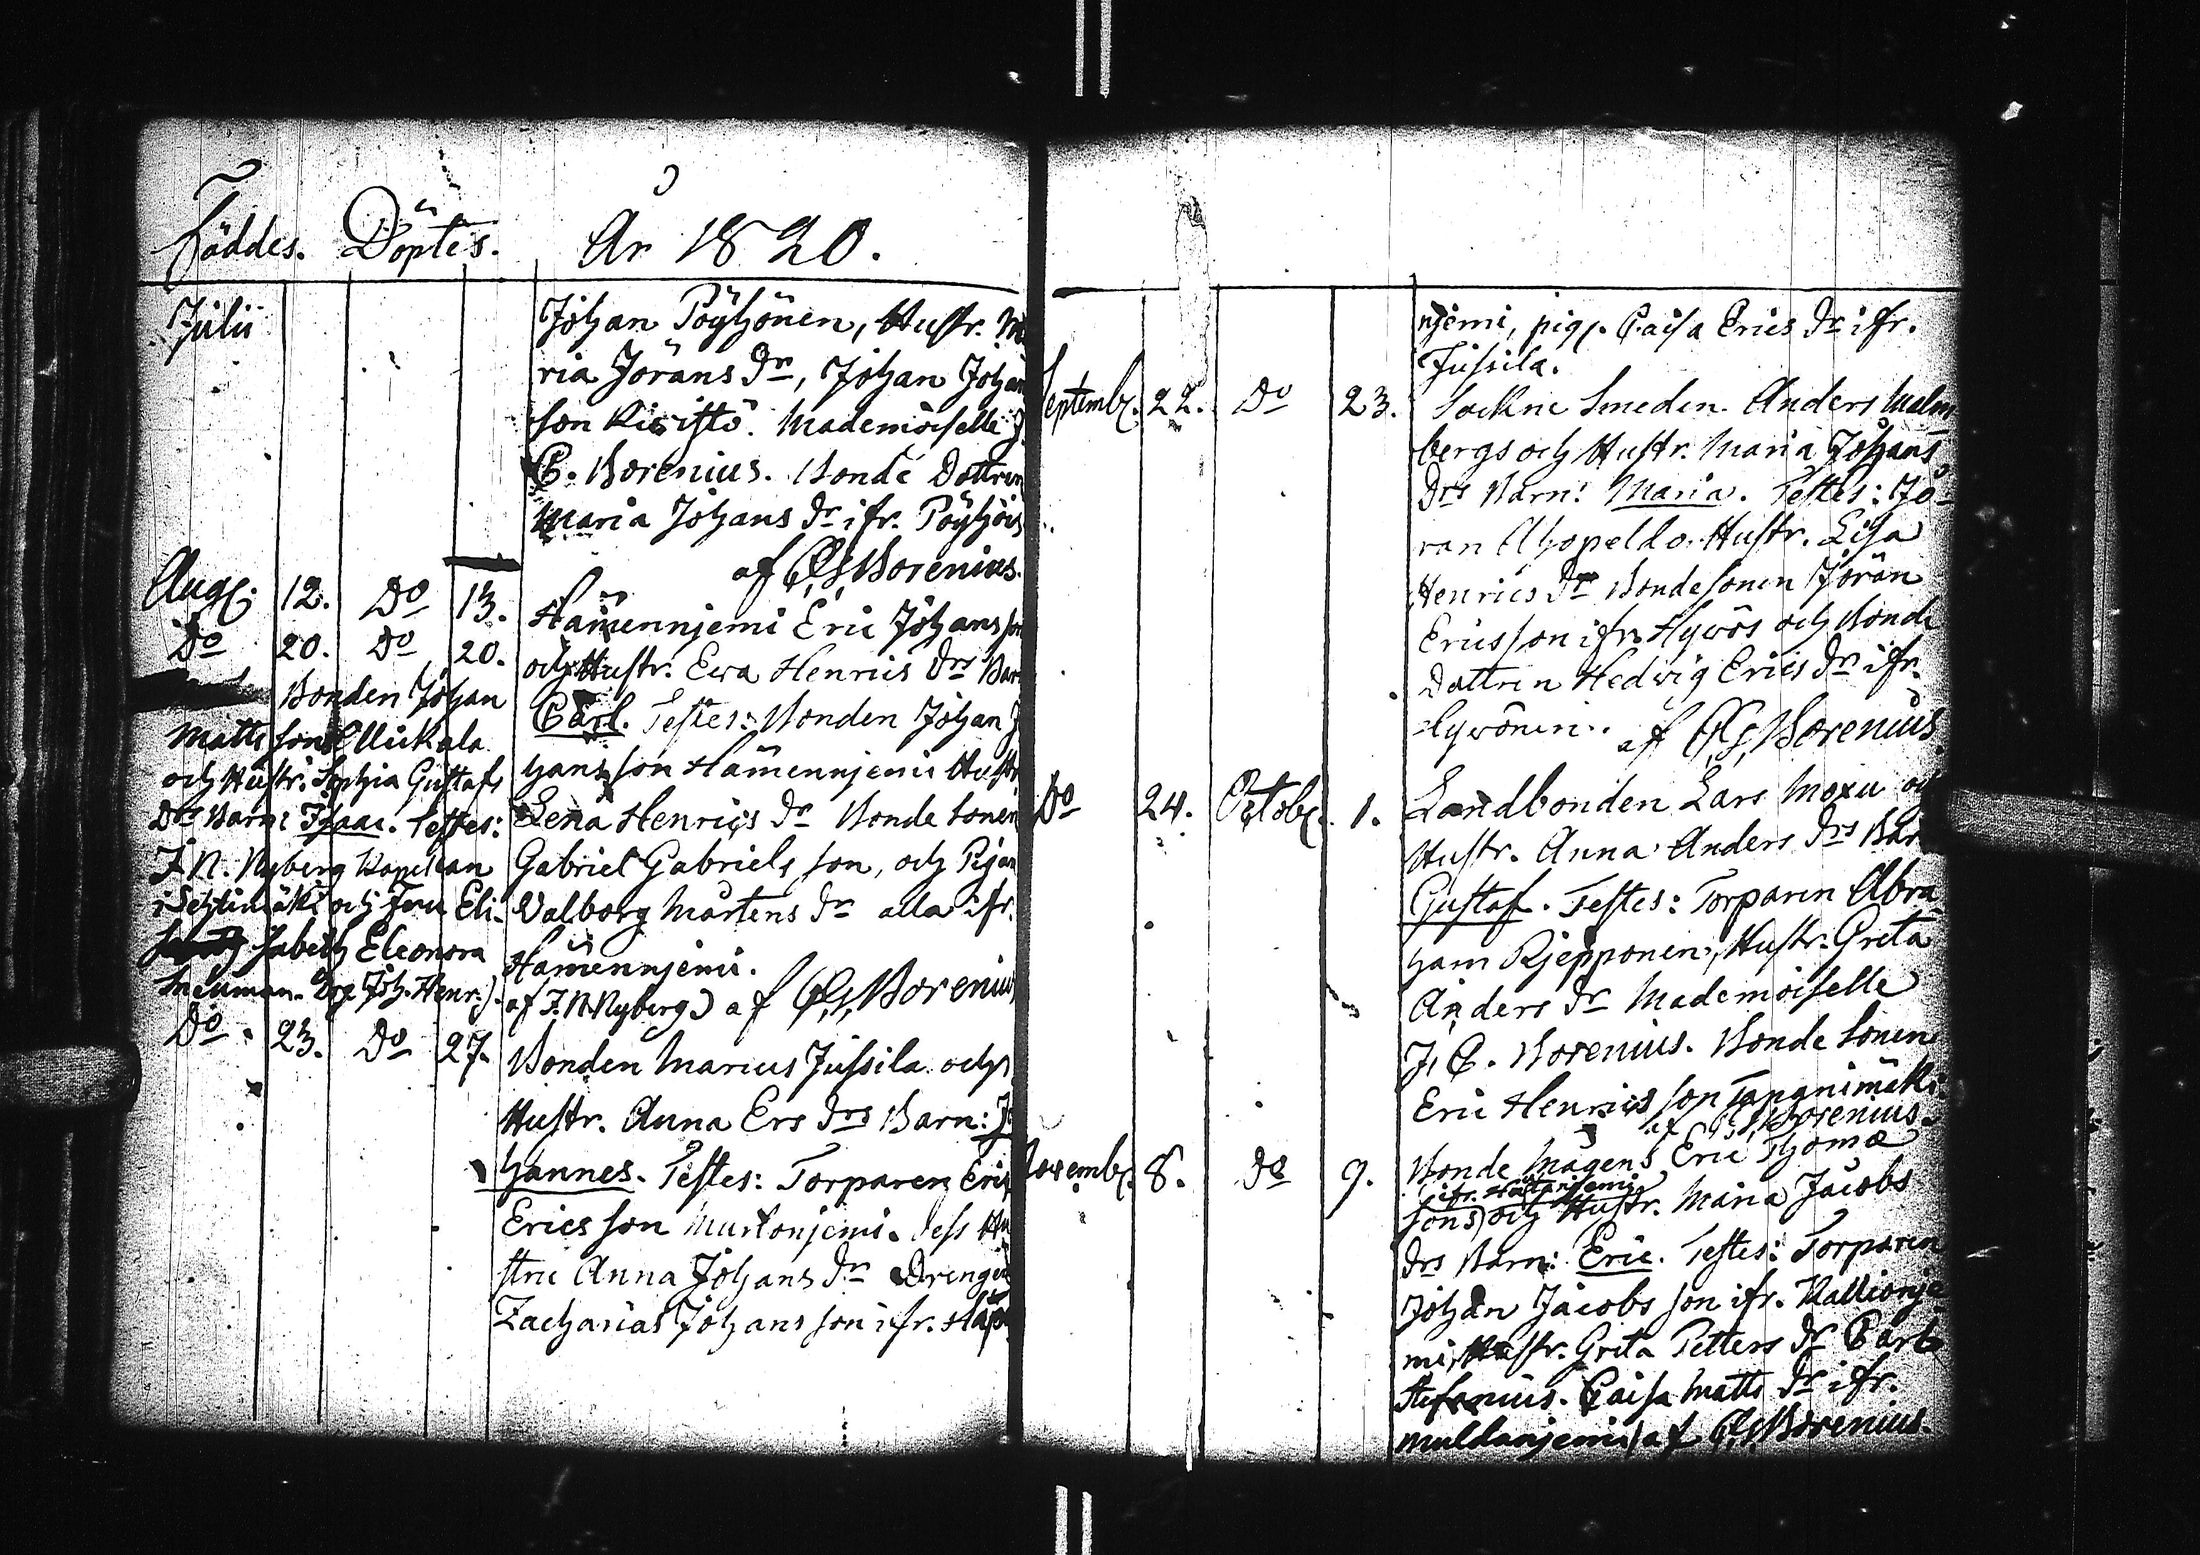 Föddes. Döptes. År 1820.
Julii
Johan Pöyhönen, Hustr. Ma
ria Jörans Dr, Johan Johan
son Kiristö. Mademoiselle J.
C. Borenius. Bonde Dottren
Maria Johans Dr ifr. Pöyhöis
af C. G. Borenius.
Aug. 12. Do 13. Hämennjemi Eric Johans son
och Hustr. Ewa Henrics Drs Barn
Carl. Testes: Bonden Johan Jo
hans son Hämennjemi Hustr.
Lena Henrics Dr Bonde Sonen
Gabriel Gabriels son, och Pigan
Valborg Mårtens Dr alla ifr.
Hämennjemi.
af C. G. Borenius
Do 20. Do 20.
Bonden Johan
Matts son Ullickala
och Hustr. Sophia Gustafs
Drs Barn: Isaac. Testes:
J. N. Nyberg Kapellan
i Sehtimäki och Fru Eli-
sabeth Eleonora
Joh. Henr.)
af J. N. Nyberg)
Do 23. Do 27. Bonden Marcus Jussila och
Hustr. Anna Ers Drs Barn: Jo
hannes. Testes: Torparen Eric
Erics son Murtonjemi. Dess Hu
stru Anna Johans Dr Drengen
Zacharias Johans son ifr. Häme
njemi, pig. Caisa Erics Dr ifr.
Jussila.
Septemb. 22. Do 23. Sockne Smeden Anders Malm
bergs och Hustr. Maria Johans
Drs Barn: Maria. Testes: Jö-
ran Ahopeldo. Hustr. Lisa
Henrics Dr Bonde sonen Jöran
Ericsson ifr. Hywös och Bonde
Dottren Hedwig Erics Dr ifr.
Hywönen. af C. G. Borenius.
Do 24. Octob. 1. Landbonden Lars Moxu och
Hustr. Anna Anders Drs Barn
Gustaf. Testes: Torparen Abra
ham Rjepponen, Hustr. Greta
Anders Dr Mademoiselle
J. C. Borenius. Bonde Sonen
Eric Henrics son Tapanimäki.
af C. G. Borenius.
Novemb. 8. Do 9. Bonde Mågens Eric Thomæ
sons) och Hustr. Maria Jacobs
Drs Barn: Eric. Testes: Torparen
Johan Jacobs son ifr. Kallionje
mi, Hustr. Greta Petters Dr Carl
Stefanius. Caisa Matts Dr ifr.
Muldanjemi) af C. G. Borenius.